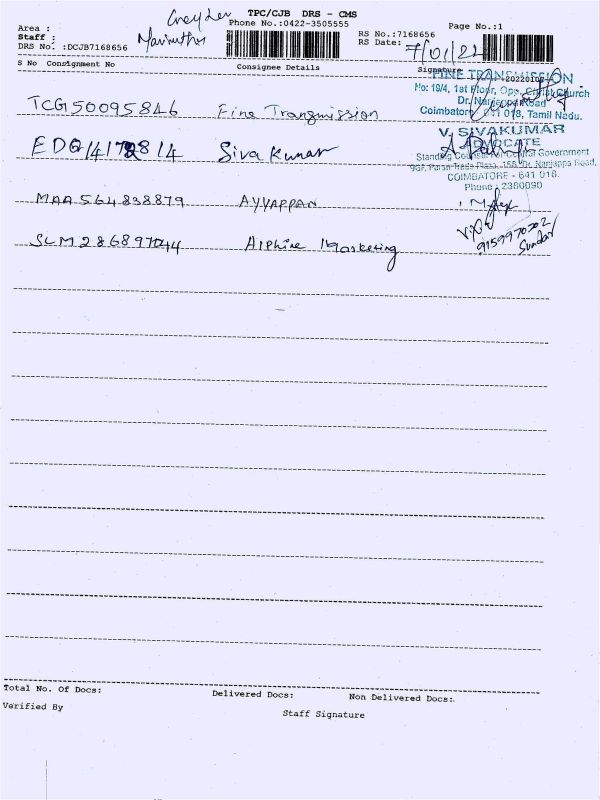 TPC/CJB DRS - CMS
Area :
Phone No.:0422-3505555
Page No.:1
Staff :
RS No.:7168656
DRS No. :DCJB7168656
RS Date: 7/01/22
S No Consignment No Consignee Details Signature
20220107
FINE TRANSMISSION
No: 19/4, 1st Floor, Opp. Christ Church
Dr. Nanjappa Road
Coimbatore - 641 018, Tamil Nadu.
TCG50095846 Fine Transmission
V. SIVAKUMAR
ADVOCATE
Standing Counsel for Central Government
Dr. Nanjappa Road,
COIMBATORE - 641 018.
Phone : 2380090
EDQ Siva Kumar
MAA564838879 AYYAPPAN
SLM286897044 Alphine Marketing
9159970202
Sundar
Total No. Of Docs: Delivered Docs: Non Delivered Docs:
Verified By Staff Signature